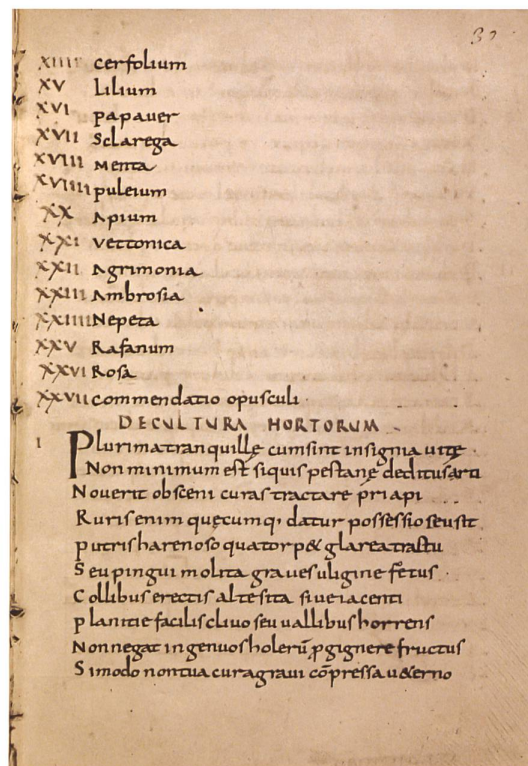 32
XIIII cerfolium
XV Lilium
XVI papauer
XVII Sclarega
XVIII Menta
XVIIII puleium
XX Apium
XXI Vettonica
XXII Agrimonia
XXIII Ambrosia
XXIIII Nepeta
XXV Rafanum
XXVI Rosa
XXVII commendatio opusculi
DE CULTURA HORTORUM
I Plurima tranquillę cum sint insignia uitę
Non minimum est siquis pestanę deditus arti
Nouerit obsceni curas tractare priapi
Ruris enim quęcumq; datur possessio seu sit
putris harenoso qua torp& glarea tractu
Seu pingui molita graues uligine fetus
Collibus erectis alte sita siue iacenti
planitie facilis cliuo seu uallibus horrens
Non negat ingenuos holerū ꝓgignere fructus
Si modo non tua cura graui cōpressa u&erno